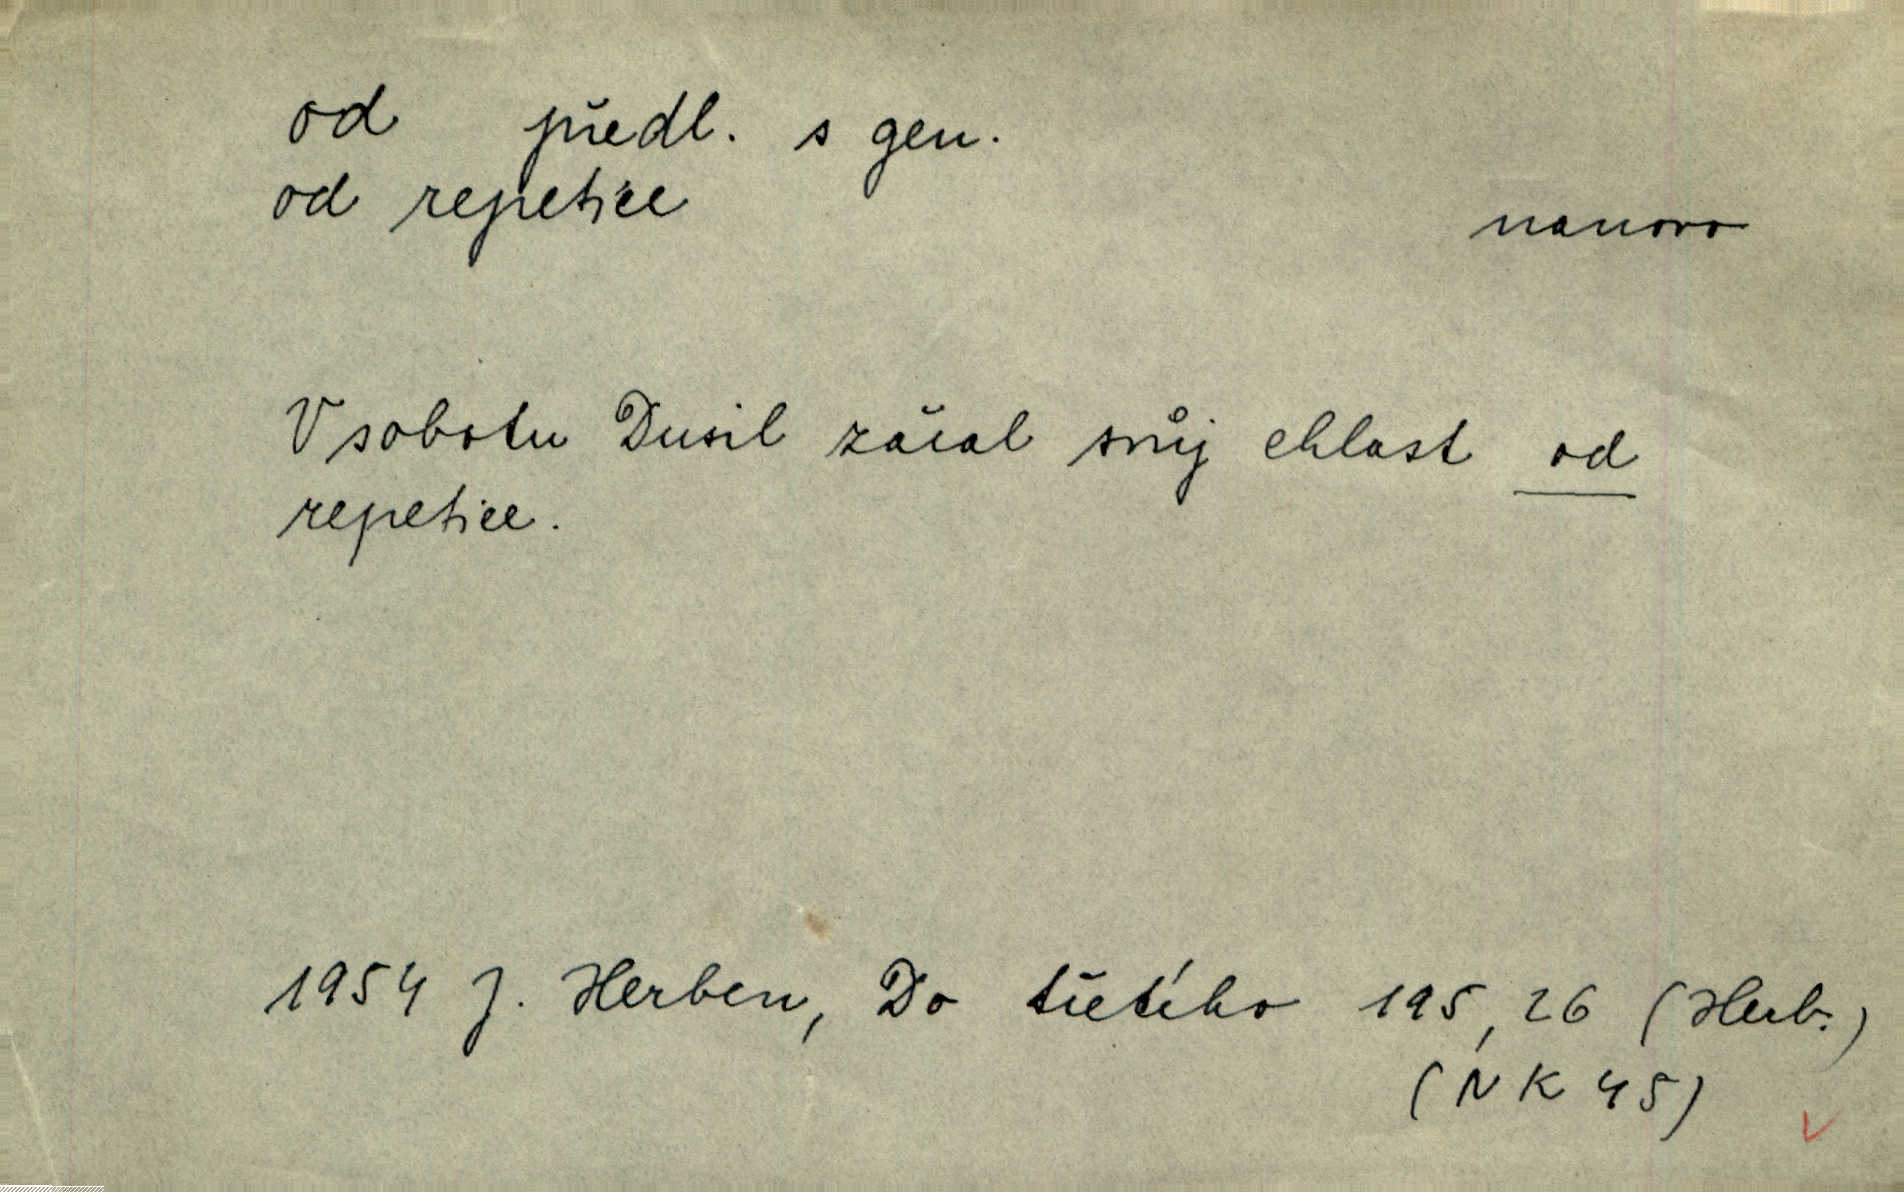 od předl. s gen.
od repetice
nanovo
V sobotu Dusil začal svůj chlast od
repetice.
1954 J. Herben, Do třetího 195, 26 (Herb.)
(NK 45)